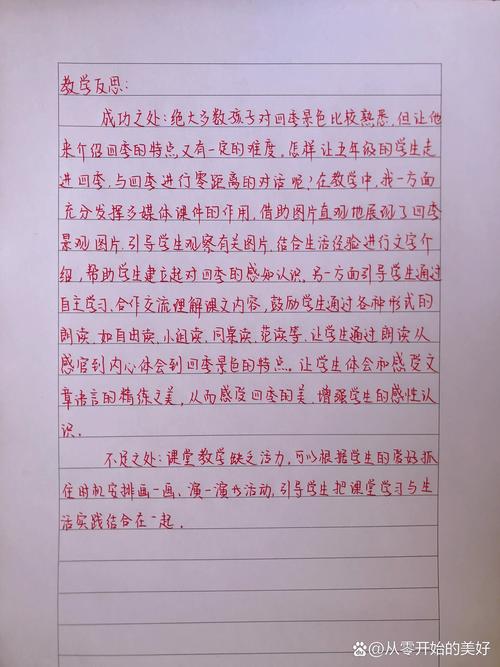 教学反思:
成功之处:绝大多数孩子对四季景色比较熟悉,但让他
来介绍四季的特点,又有一定的难度。怎样让五年级的学生走
进四季,与四季进行零距离的对话呢?在教学中,我一方面
充分发挥多媒体课件的作用,借助图片直观地展现了四季
景观图片,引导学生观察有关图片,结合生活经验进行文字介
绍,帮助学生建立起对四季的感知认识。另一方面引导学生通过
自主学习、合作交流理解课文内容,鼓励学生通过各种形式的
朗读,如自由读、小组读、同桌读、范读等,让学生通过朗读从
感官到内心体会到四季景色的特点。让学生体会和感受文
章语言的精练之美,从而感受四季的美,增强学生的感性认
识。
不足之处:课堂教学缺乏活力,可以根据学生的爱好抓
住时机安排画一画、演一演的活动,引导学生把课堂学习与生
活实践结合在一起。
@从零开始的美好